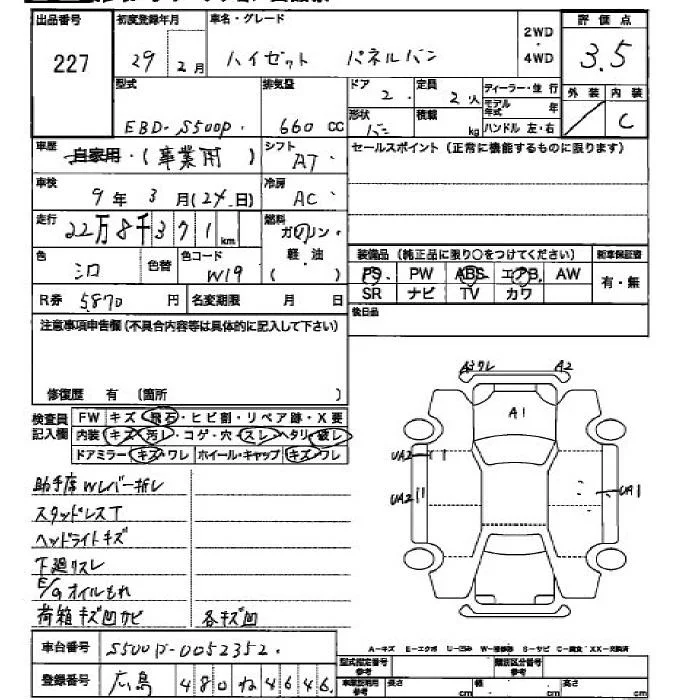 出品番号 初度登録年月 車名・グレード 評価点
227 29年 2月 ハイゼット パネルバン 2WD・4WD 3.5
型式 排気量 ドア 2 定員 2人 ディーラー・並行 外装 内装
EBD-S500P 660cc 形状 バン 積載 kg モデル年式 年 ハンドル 左・右 C
車歴 自家用・(事業用) シフト AT セールスポイント(正常に機能するものに限ります)
車検 9年 3月(24日) 冷房 AC
走行 22万8千371km 燃料 ガソリン・軽油( )
色 シロ 色替 色コード W19 装備品(純正品に限り○をつけてください) 新車保証書
PS PW ABS エアB AW 有・無
R券 5870円 名変期限 月 日 SR ナビ TV カワ
後日品
注意事項申告欄(不具合内容等は具体的に記入して下さい)
修復歴 有(箇所 )
検査員記入欄 FW キズ・飛石・ヒビ割・リペア跡・X要
内装 キズ・汚レ・コゲ・穴・スレ・ヘタリ・破レ
ドアミラー キズ・ワレ ホイール・キャップ キズ・ワレ
A3ワレ A2
A1
UA2
UA2 UA1
助手席Wレバー折レ
スタッドレスT
ヘッドライトキズ
下廻リスレ
E/gオイルもれ
荷箱キズ凹サビ 各キズ凹
車台番号 S500P-0052352
A-キズ E-エクボ U-凹み W-補修跡 S-サビ C-腐食 XX-交換済
登録番号 広島 480 ね 4646
型式指定番号 参考 類別区分番号 参考
車庫証明用 参考 長さ cm 幅 cm 高さ cm